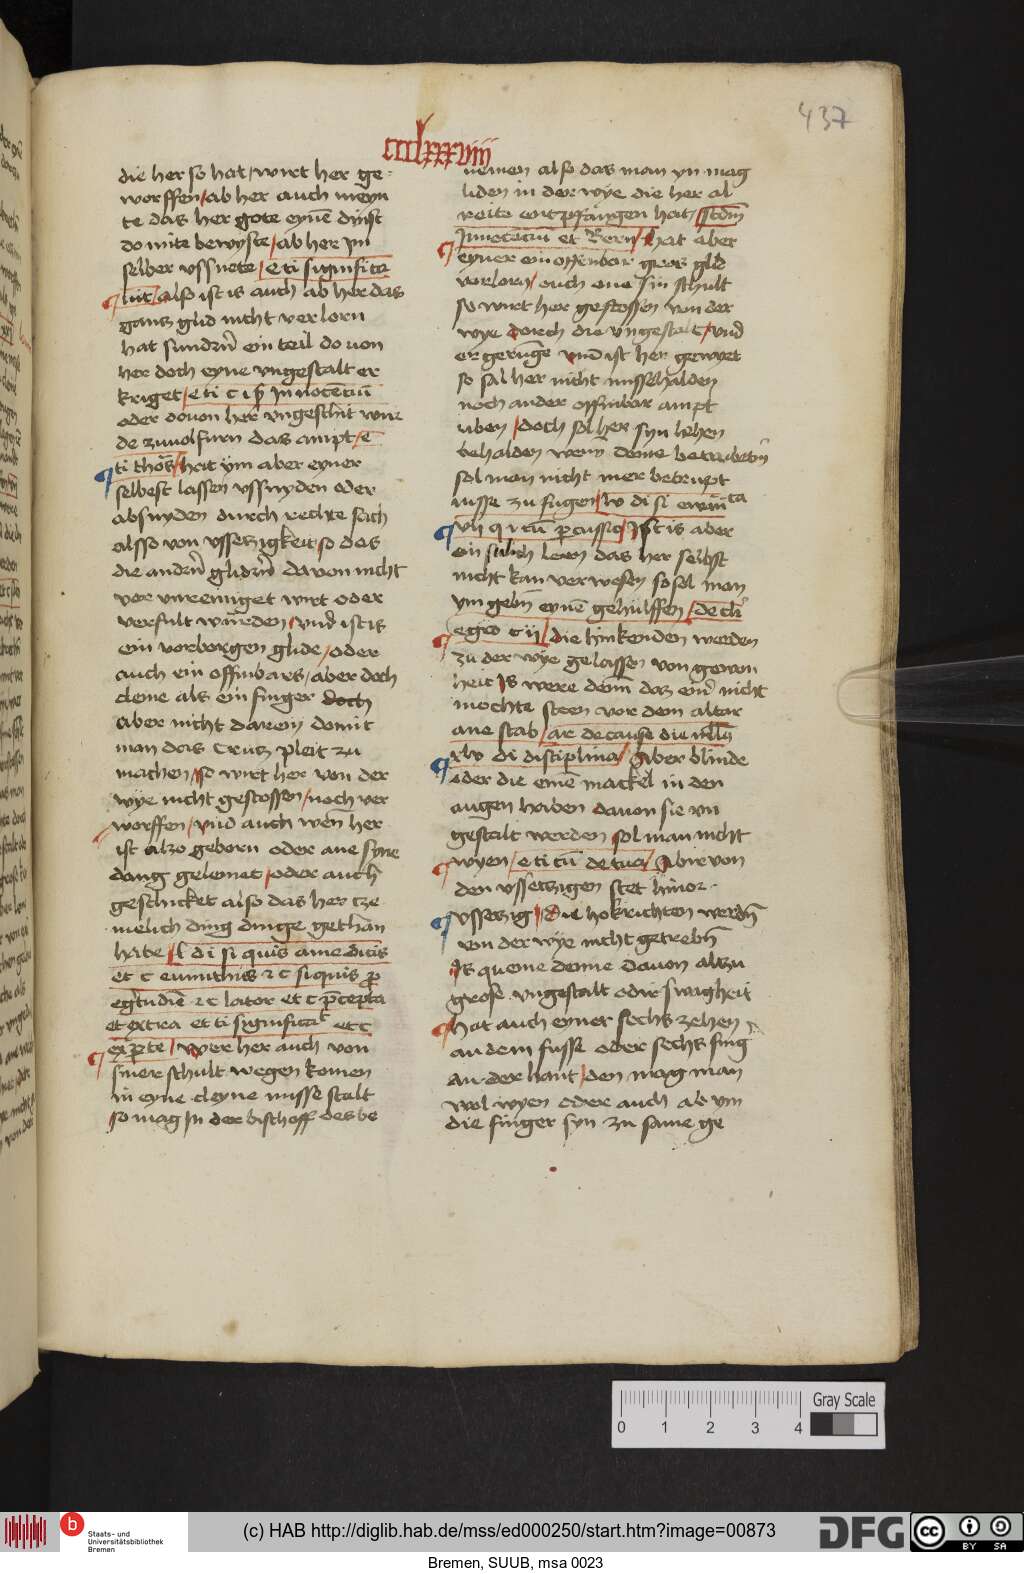 437
ccclxxxviiij
die her so hat / wirt her ge
worffen / ab her auch meyn
te das her gote eynē dinst
do mite bewyste / ab her ym
selber vssnete / e ti significa
uit / also ist is auch ab her das
gans glid nicht verlorn
hat sundern̄ ein teil do von
her doch eyne vngestalt er
kriget / e ti c i p̄ Innocenciū
oder dovon her vngeschit wur
de zuuolfurn das ampt / e
ti thos / hat ym aber eyner
selbest lassen vssnyden oder
absnyden durch rechte sach
alsso von vssetzigkeit / so das
die andern̄ glidern̄ davon nicht
vor vnreiniget wirt oder
verfult wurden / vnd ist is
ein vorborgen glide / oder
auch ein offinbars / aber doch
cleme als ein finger doch
aber nicht darein domit
man das Crucz pleit zu
machen / so wirt her von der
wye nicht gestossen / noch ver
worffen / vnd auch wen her
ist also geborn oder ane syne
dang gelemet / oder auch
geschicket also das her cze
melich ding dinge gethan
habe / l di si quis a medicis
et c eunuchus 2 c siquis p
egritudiē 2 c lator et c p̄cepta
et extra et ti significaᵗ et c
ex p̄te / wer her auch von
siner schult wegen komen
in eyne cleyne misse stalt
so mag In der bischoff des be
nemen also das man yn mag
liden in der wye die her al
reite entpfangen hat / scdm̄
Innocenciū et Bern̄ / hat aber
eyner ein offinbar gros glid
vorlorn / ouch ane sin schult
so wirt her gestossen von der
wye dorch die vngestalt / vnd
ergerunge vnd ist her gewyet
so sal her nicht misshalden
noch ander offinbar ampt
uben / doch sol her syn lehen
behalden wenn deme betrubetin̄
sol man nicht mer betrupt
nisse zu fugen / lv di si euan̄ta
vij q i cū p̄cussio / Ist is aber
ein sulich leen das her selbst
nicht kan verwesen so sol man
ym geb̄n eynē gehulffen / de cl̄i
egro c ij / die hinkenden werden
zu der wye gelassen von gewon
heit Is were denn das einr̄ nicht
mochte steen vor dem altar
ane stab / ar de causse die nullū
xlv di disciplina / Aber blinde
oder die einē mackel in den
augen haben davon sie vn
gestalt werden sol man nicht
wyen / e ti cū de tua / Abir von
den vssetzigen stet hinor
vssetzig / die hokrichten werdn̄
von der wye nicht getrebn̄
Is queme denne davon alzu
grose vngestalt odir swagheit
Hat auch eyner sechs zehen
an dem fusse oder sechs fing
an der hant / den mag man
wol wyen oder auch ab ym
die finger syn zu same ge
0 1 2 3 4
Gray Scale
b
Staats- und
Universitätsbibliothek
Bremen
(c) HAB http://diglib.hab.de/mss/ed000250/start.htm?image=00873
DFG
cc
BY SA
Bremen, SUUB, msa 0023